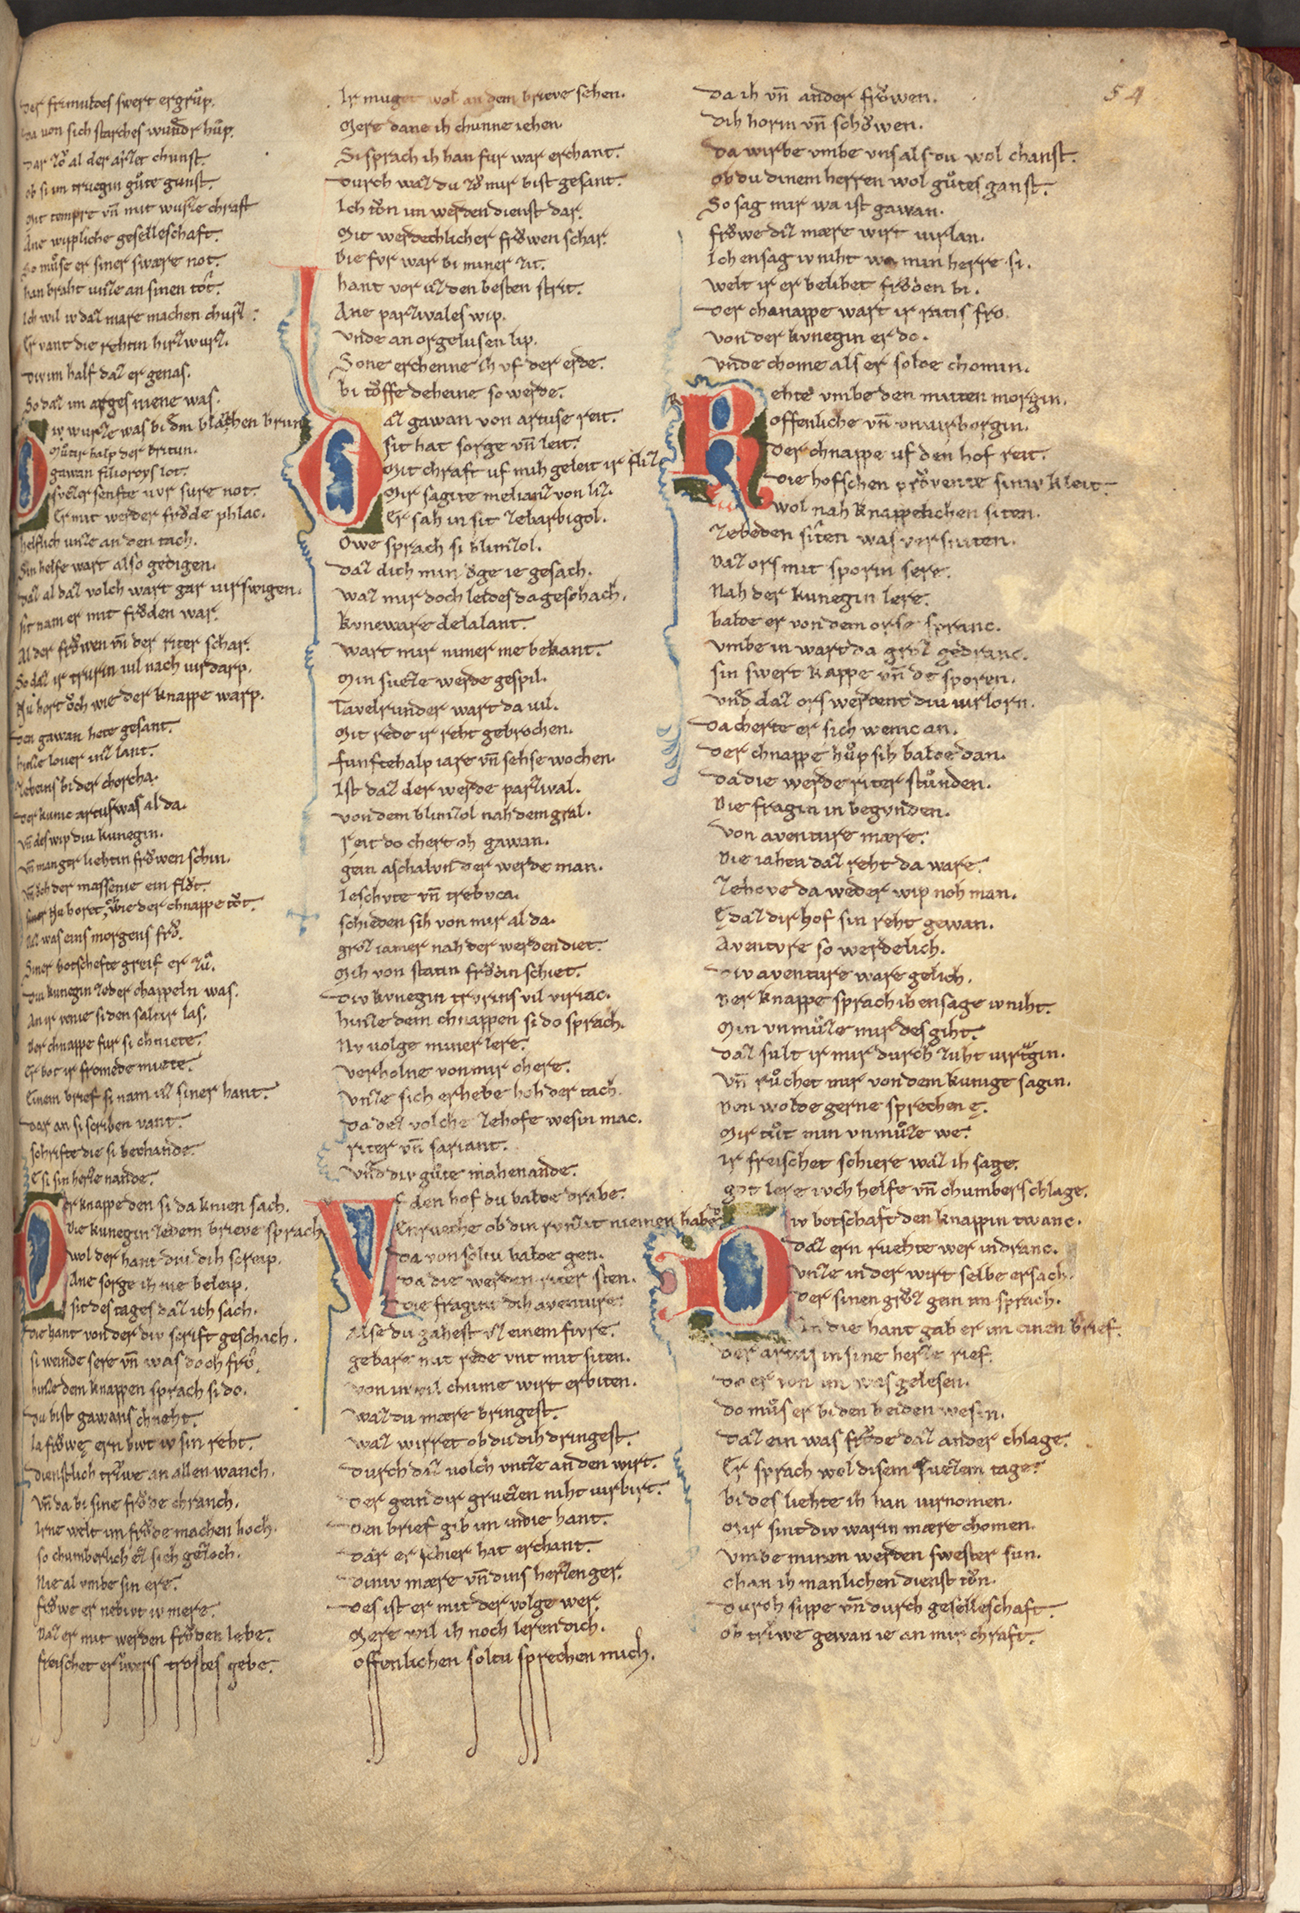 Der frimutoes swert ergrůp.
Da von sich starches wundir hůp.
Dar zŏ al der arzet chunst.
ob si im truegin gůte gunst.
mit temprt vñ mit wurze chraft
Ane wipliche geselleschaft.
So můse er siner swære not.
han braht unze an sinen tôt.
Ich wil iv daz mare machen churz.
Er vant die rehtin hirzwurz.
Div im half daz er genas.
So daz im arges niene was.
Div wurze was bi dem blanchen brun
Můtir halp der britun.
gawan filuroys lot.
svzer senfte vvr sure not.
Er mit werder frŏde phlac.
helflich unze an den tach.
Sin helfe wart also gedigen.
Daz al daz volch wart gar virswigen.
sit nam er mit frŏden war.
Al der frŏwen vñ der riter schar.
So daz ir trurin vil nach virdarp.
Nu hort ŏch wie der knappe warp.
Den gawan hete gesant.
hinze lover inz lant.
zebems bi der chorcha.
Der kunic artus was al da.
vñ des wip diu kunegin.
vñ manger liehtin frŏwen schin.
vñ ŏch der massenie ein flŏt.
Nu horet, wie der chnappe tŏt.
daz was eins morgens frŏ.
Siner botschefte greif er zů.
Diu kunegin zoder chappeln was.
An ir venie si den saltir las.
Der chnappe fur si chniete.
Er bot ir fromede miete.
Einem brief si nam uz siner hant.
Dar an si scriben vant.
schrifte die si bechande.
E si sin herze nande.
Der knappe den si da knien sach.
Die kunegin zedem brieve sprach.
wol der hant diu dih screip.
Ane sorge ih nie beleip.
sit des tages daz ich sach.
Die hant von der div scrift geschach.
si weinde sere vñ was doch frŏ.
hinze dem knappen sprach si do.
Du bist gawans chneht.
Ja frŏwe ern bivt iv sin reht.
dienstlich triwe an allen wanch.
vñ da bi sine frŏde chranch.
Irne welt im frŏde machen hoch.
so chumberlich ez sich gezoch.
Nie al umbe sin ere.
frŏwe er nebivt iv mere.
Daz er mit werden frŏden lebe.
freischet er iwers trostes gebe.
Ir muget wol an dem brieve sehen.
Mere dane ih chunne iehen.
Si sprach ih han fur war erchant.
Durch waz du zŏ mir bist gesant.
Ich tŏn im werden dienst dar.
Mit werdechlicher frŏwen schar.
Die fvr war bi miner zit.
hant vor uz den besten strit.
Ane parzivales wip.
vnde an orgelusen lip.
Sone erchenne ih vf der erde.
bi tŏffe deheine so werde.
Daz gawan von artuse reit.
sit hat sorge vñ leit.
Mit chraft uf mih geleit ir fliz.
Mir sagite melianz von liz.
Er sah in sit zebarbigol.
Owe sprach si blimzol.
Daz dich min ŏge ie gesach.
waz mir doch leides da geschach.
kuneware delalant.
wart mir nimer me bekant.
Min sueze werde gespil.
Tavelrunder wart da uil.
Mit rede ir reht gebrochen.
funftehalp iare vñ sehse wochen.
Ist daz der werde parzival.
von dem blimzol nah dem gral.
reit do chert oh gawan.
gein aschalun der werde man.
Ieschvte vñ trebvca.
schieden sih von mir al da.
groz iamer nah der werden diet.
Mih von statin frŏdin schiet.
Div kvnegin trvrins vil viriac.
hinze dem chnappen si do sprach.
Nv volge miner lere.
verholne von mir chere.
vnze sich erhebe hoh der tach.
Da dez volche zehofe wesin mac.
riter vñ sariant.
vnd div gůte mahenande.
Vf den hof du balde drabe.
Enrveche ob din runzit niemen habe.
Da von soltu balde gen.
Da die werden riter sten.
Die fragint dih aventure.
Alse du gahest vz einem fivre.
gebare mit rede vnt mit siten.
von in vil chume wirt erbiten.
waz du mære bringest.
waz wirret ob du dih dringest.
Durch daz volch unze an den wirt.
Der gein dir gruezen niht virbirt.
Den brief gib im indie hant.
Dar er schier hat erchant.
Diniv mære vñ dins herzen ger.
Des ist er mit der volge wer.
Mere wil ih noch leren dich.
Offenlichen soltu sprechen mich.
Da ih vñ ander frŏwen.
Dih horin vñ schŏwen.
Da wirbe umbe uns als ou wol chanst.
Ob du dinem herren wol gůtes ganst.
So sag mir wa ist gawan.
frŏwe diz mære wirt virlan.
Ich ensag iv niht wa min herre si.
welt ir er belibet frŏden bi.
Der chanappe wart ir ratis fro.
von der kvnegin er do.
vnde chome als er solde chomin.
Rehte umbe den mitten morgin.
offenliche vñ vnvirborgin.
Der chnappe uf den hof reit.
Die hofschen prŏvenze siniv kleit.
wol nah knappelichen siten.
zebeden siten was versniten.
Daz ors mit sporin sere.
Nah der kunegin lere.
balde er von dem orse spranc.
Umbe in wart da groz gedranc.
sin swert kappe vñ de sporen.
Und daz ors werdent diu virlorn.
Da cherte er sich wenic an.
Der chnappe hůp sih balde dan.
Da die werde riter stůnden.
Die fragin in begvnden.
Von aventure mære.
Die iahen daz reht da ware.
zehove da weder wip noh man.
E daz dir hof sin reht gewan.
Aventvre so werdelich.
Div aventure ware gelich.
Der knappe sprach ih ensage iv niht.
Min vnmůze mir des giht.
Daz sult ir mir durch zuht virtrăgin.
vñ růchet mir von dem kunige sagin.
Den wolde gerne sprechen e.
Mir tůt min vnmůze we.
ir freischet schiere waz ih sage.
got lere ivch helfe vñ chumber schlage.
Div botschaft den knappin twanc.
Daz ern ruchte wer indranc.
unze in der wirt selbe ersach.
Der sinen grŏz gein im sprach.
In die hant gab er im einen brief.
Der artus in sine herze rief.
Do er von im was gelesen.
do můs er bi den beiden wesin.
Daz ein was frŏde daz ander chlage.
Er sprach wol disem suezem tage.
bi des liehte ih han virnomen.
Mir sint div warin mære chomen.
Vmbe minen werden swester sun.
chan ih manlichen dienst tŏn.
Durch sippe vñ durch geselleschaft.
Ob triwe gewan ie an mir chraft.
54